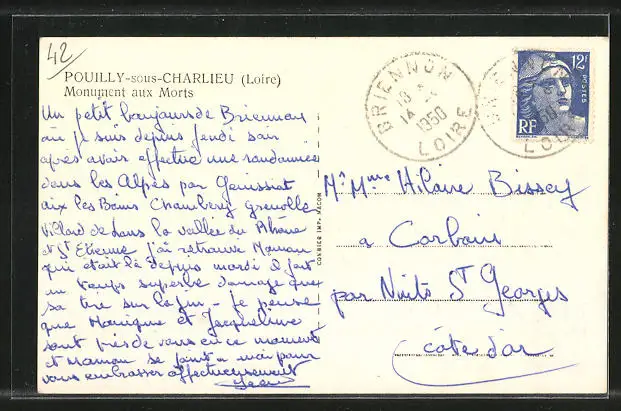 42
POUILLY-sous-CHARLIEU (Loire)
Monument aux Morts
Un petit bonjour de Briennon
où je suis depuis jeudi soir
après avoir effectué une randonnée
dans les Alpes par Genissiat
aix les Bains Chambery grenoble
Villard de Lans la vallée du Rhône
et St Etienne j'ai retrouvé Maman
qui était là depuis mardi il fait
un temps superbe dommage que
sa tire sur la fin - je pense
que Monique et Jacqueline
sont près de vous en ce moment
et Maman se joint a moi pour
vous embrasser affectueusement
COURIER IMP. MACON
BRIENNON
18
14
1950
LOIRE
12F
POSTES
RF
Mr Mme Hilaire Bissey
a Corboin
par Nuits St Georges
côte d'or